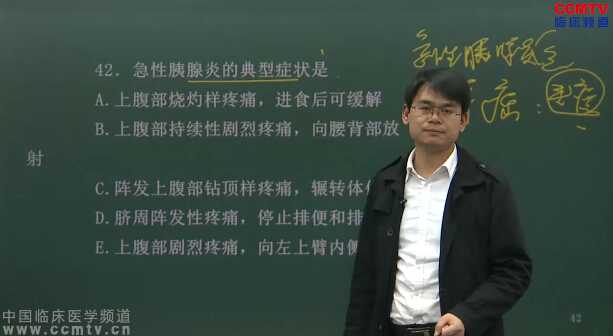 CCMTV
临床频道
急性胰腺炎
症：重症
42．急性胰腺炎的典型症状是
A.上腹部烧灼样疼痛，进食后可缓解
B.上腹部持续性剧烈疼痛，向腰背部放
射
C.阵发上腹部钻顶样疼痛，辗转体
D.脐周阵发性疼痛，停止排便和排
E.上腹部剧烈疼痛，向左上臂内侧
中国临床医学频道
www.ccmtv.cn
42